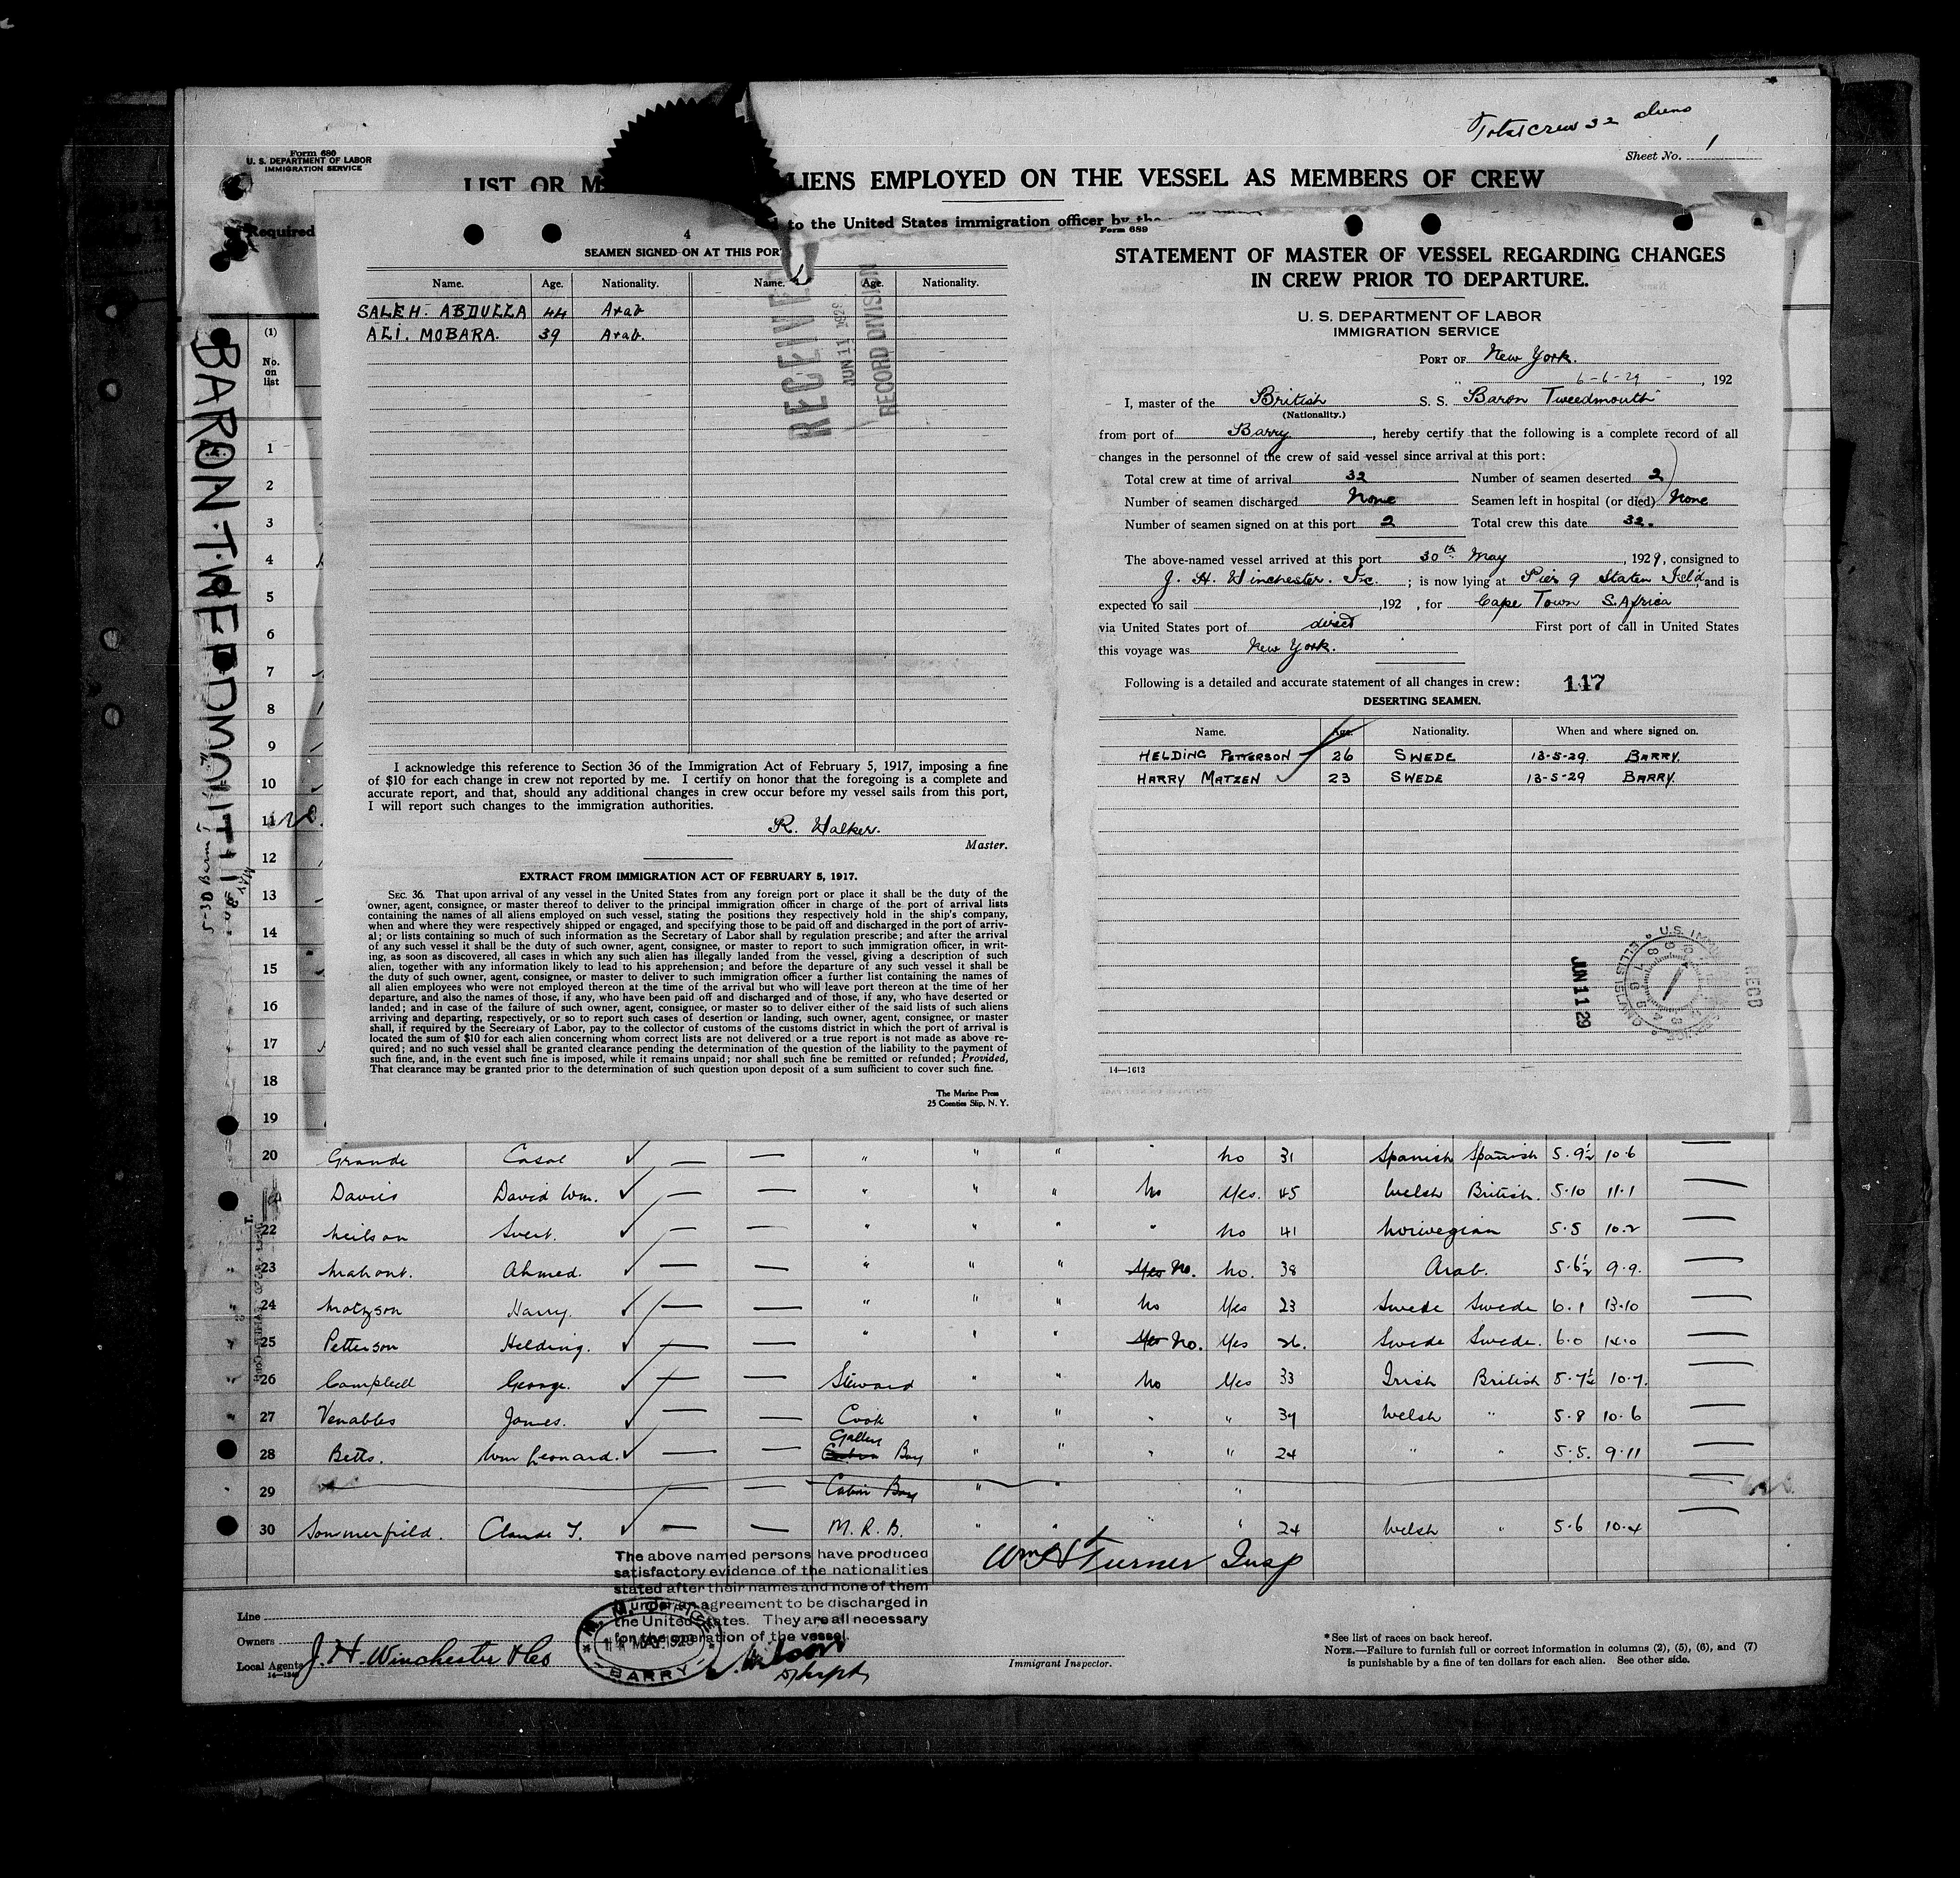 Total crew 32 aliens
Sheet No. 1
Form 680
U. S. DEPARTMENT OF LABOR
IMMIGRATION SERVICE
LIST OR M LIENS EMPLOYED ON THE VESSEL AS MEMBERS OF CREW
Required d to the United States immigration officer by the
(1)
No. on list
BARON TWEEDMOUTH
1
2
3
4
5
6
7
8
9
10
11
12
13
14
15
16
17
18
19
4
SEAMEN SIGNED ON AT THIS POR
Name. Age. Nationality. Name. Age. Nationality.
SALEH. ABDULLA 44 Arab
ALI. MOBARA. 39 Arab.
RECEIVED
JUN 11 1929
RECORD DIVISION
I acknowledge this reference to Section 36 of the Immigration Act of February 5, 1917, imposing a fine
of $10 for each change in crew not reported by me. I certify on honor that the foregoing is a complete and
accurate report, and that, should any additional changes in crew occur before my vessel sails from this port,
I will report such changes to the immigration authorities.
R. Walker.
Master.
EXTRACT FROM IMMIGRATION ACT OF FEBRUARY 5, 1917.
SEC. 36. That upon arrival of any vessel in the United States from any foreign port or place it shall be the duty of the
owner, agent, consignee, or master thereof to deliver to the principal immigration officer in charge of the port of arrival lists
containing the names of all aliens employed on such vessel, stating the positions they respectively hold in the ship's company,
when and where they were respectively shipped or engaged, and specifying those to be paid off and discharged in the port of arriv-
al; or lists containing so much of such information as the Secretary of Labor shall by regulation prescribe; and after the arrival
of any such vessel it shall be the duty of such owner, agent, consignee, or master to report to such immigration officer, in writ-
ing, as soon as discovered, all cases in which any such alien has illegally landed from the vessel, giving a description of such
alien, together with any information likely to lead to his apprehension; and before the departure of any such vessel it shall be
the duty of such owner, agent, consignee, or master to deliver to such immigration officer a further list containing the names of
all alien employees who were not employed thereon at the time of the arrival but who will leave port thereon at the time of her
departure, and also the names of those, if any, who have been paid off and discharged and of those, if any, who have deserted or
landed; and in case of the failure of such owner, agent, consignee, or master so to deliver either of the said lists of such aliens
arriving and departing, respectively, or so to report such cases of desertion or landing, such owner, agent, consignee, or master
shall, if required by the Secreiary of Labor, pay to the collector of customs of the customs district in which the port of arrival is
located the sum of $10 for each alien concerning whom correct lists are not delivered or a true report is not made as above re-
quired; and no such vessel shall be granted clearance pending the determination of the question of the liability to the payment of
such fine, and, in the event such fine is imposed, while it remains unpaid; nor shall such fine be remitted or refunded; Provided,
That clearance may be granted prior to the determination of such question upon deposit of a sum sufficient to cover such fine.
The Marine Press
25 Coenties Slip, N. Y.
Form 689
STATEMENT OF MASTER OF VESSEL REGARDING CHANGES
IN CREW PRIOR TO DEPARTURE.
U. S. DEPARTMENT OF LABOR
IMMIGRATION SERVICE
PORT OF New York.
6-6-29 , 192
I, master of the British S. S. Baron Tweedmouth
(Nationality.)
from port of Barry , hereby certify that the following is a complete record of all
changes in the personnel of the crew of said vessel since arrival at this port:
Total crew at time of arrival 32 Number of seamen deserted 2
Number of seamen discharged None Seamen left in hospital (or died) None
Number of seamen signed on at this port 2 Total crew this date 32.
The above-named vessel arrived at this port 30th May , 1929, consigned to
J. H. Winchester. Inc. ; is now lying at Pier 9 Staten Isl'd and is
expected to sail ,192 , for Cape Town S. Africa
via United States port of direct First port of call in United States
this voyage was New York.
Following is a detailed and accurate statement of all changes in crew: 117
DESERTING SEAMEN.
Name. Age. Nationality. When and where signed on.
HELDING PETTERSON 26 SWEDE 13-5-29. BARRY.
HARRY MATZEN 23 SWEDE 13-5-29 BARRY.
JUN 11 29
REC'D
14—1613
20 Grande Casal " " " " no 31 Spanish Spanish 5.9½ 10.6
Davies David Wm. " " " No Yes. 45 Welsh British. 5.10 11.1
22 Neilson Svert. " " " " No 41 Norwegian 5.5 10.2
23 Mahont. Ahmed. " " " Yes No. No. 38 Arab. 5.6½ 9.9.
24 Matzson Harry. " " " No Yes 23 Swede Swede 6.1 13.10
25 Petterson Helding. " " " Yes No. Yes 26. Swede Swede. 6.0 14.0
26 Campbell George. Steward " " No Yes 33 Irish British 5.7½ 10.7.
27 Venables James. Cook " " " " 39 Welsh " 5.8 10.6
28 Betts. Wm Leonard. Galley Cabin Boy " " " " 24 " " 5.5. 9.11
29 Cabin Boy " " "
30 Sommerfield. Claude T. M. R. B. " " " " 24 Welsh " 5.6 10.4
Wm H Turner Insp
The above named persons have produced
satisfactory evidence of the nationalities
stated after their names and none of them
is under an agreement to be discharged in
the United States. They are all necessary
for the operation of the vessel.
M. M. OFFICE
14 MAY 1929
BARRY
Line
Owners
Local Agents J. H. Winchester & Co
Immigrant Inspector.
* See list of races on back hereof.
NOTE.—Failure to furnish full or correct information in columns (2), (5), (6), and (7)
is punishable by a fine of ten dollars for each alien. See other side.